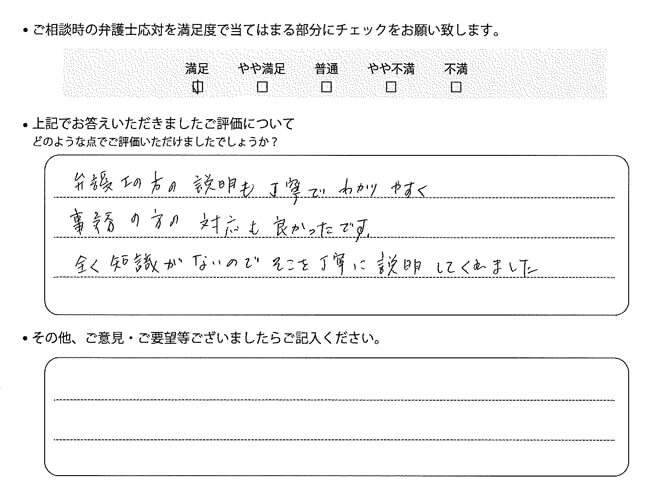 ・ご相談時の弁護士応対を満足度で当てはまる部分にチェックをお願い致します。
満足 やや満足 普通 やや不満 不満
・上記でお答えいただきましたご評価について
どのような点でご評価いただけましたでしょうか？
弁護士の方の説明も丁寧でわかりやすく
事務の方の対応も良かったです。
全く知識がないのでそこを丁寧に説明してくれました
・その他、ご意見・ご要望等ございましたらご記入ください。